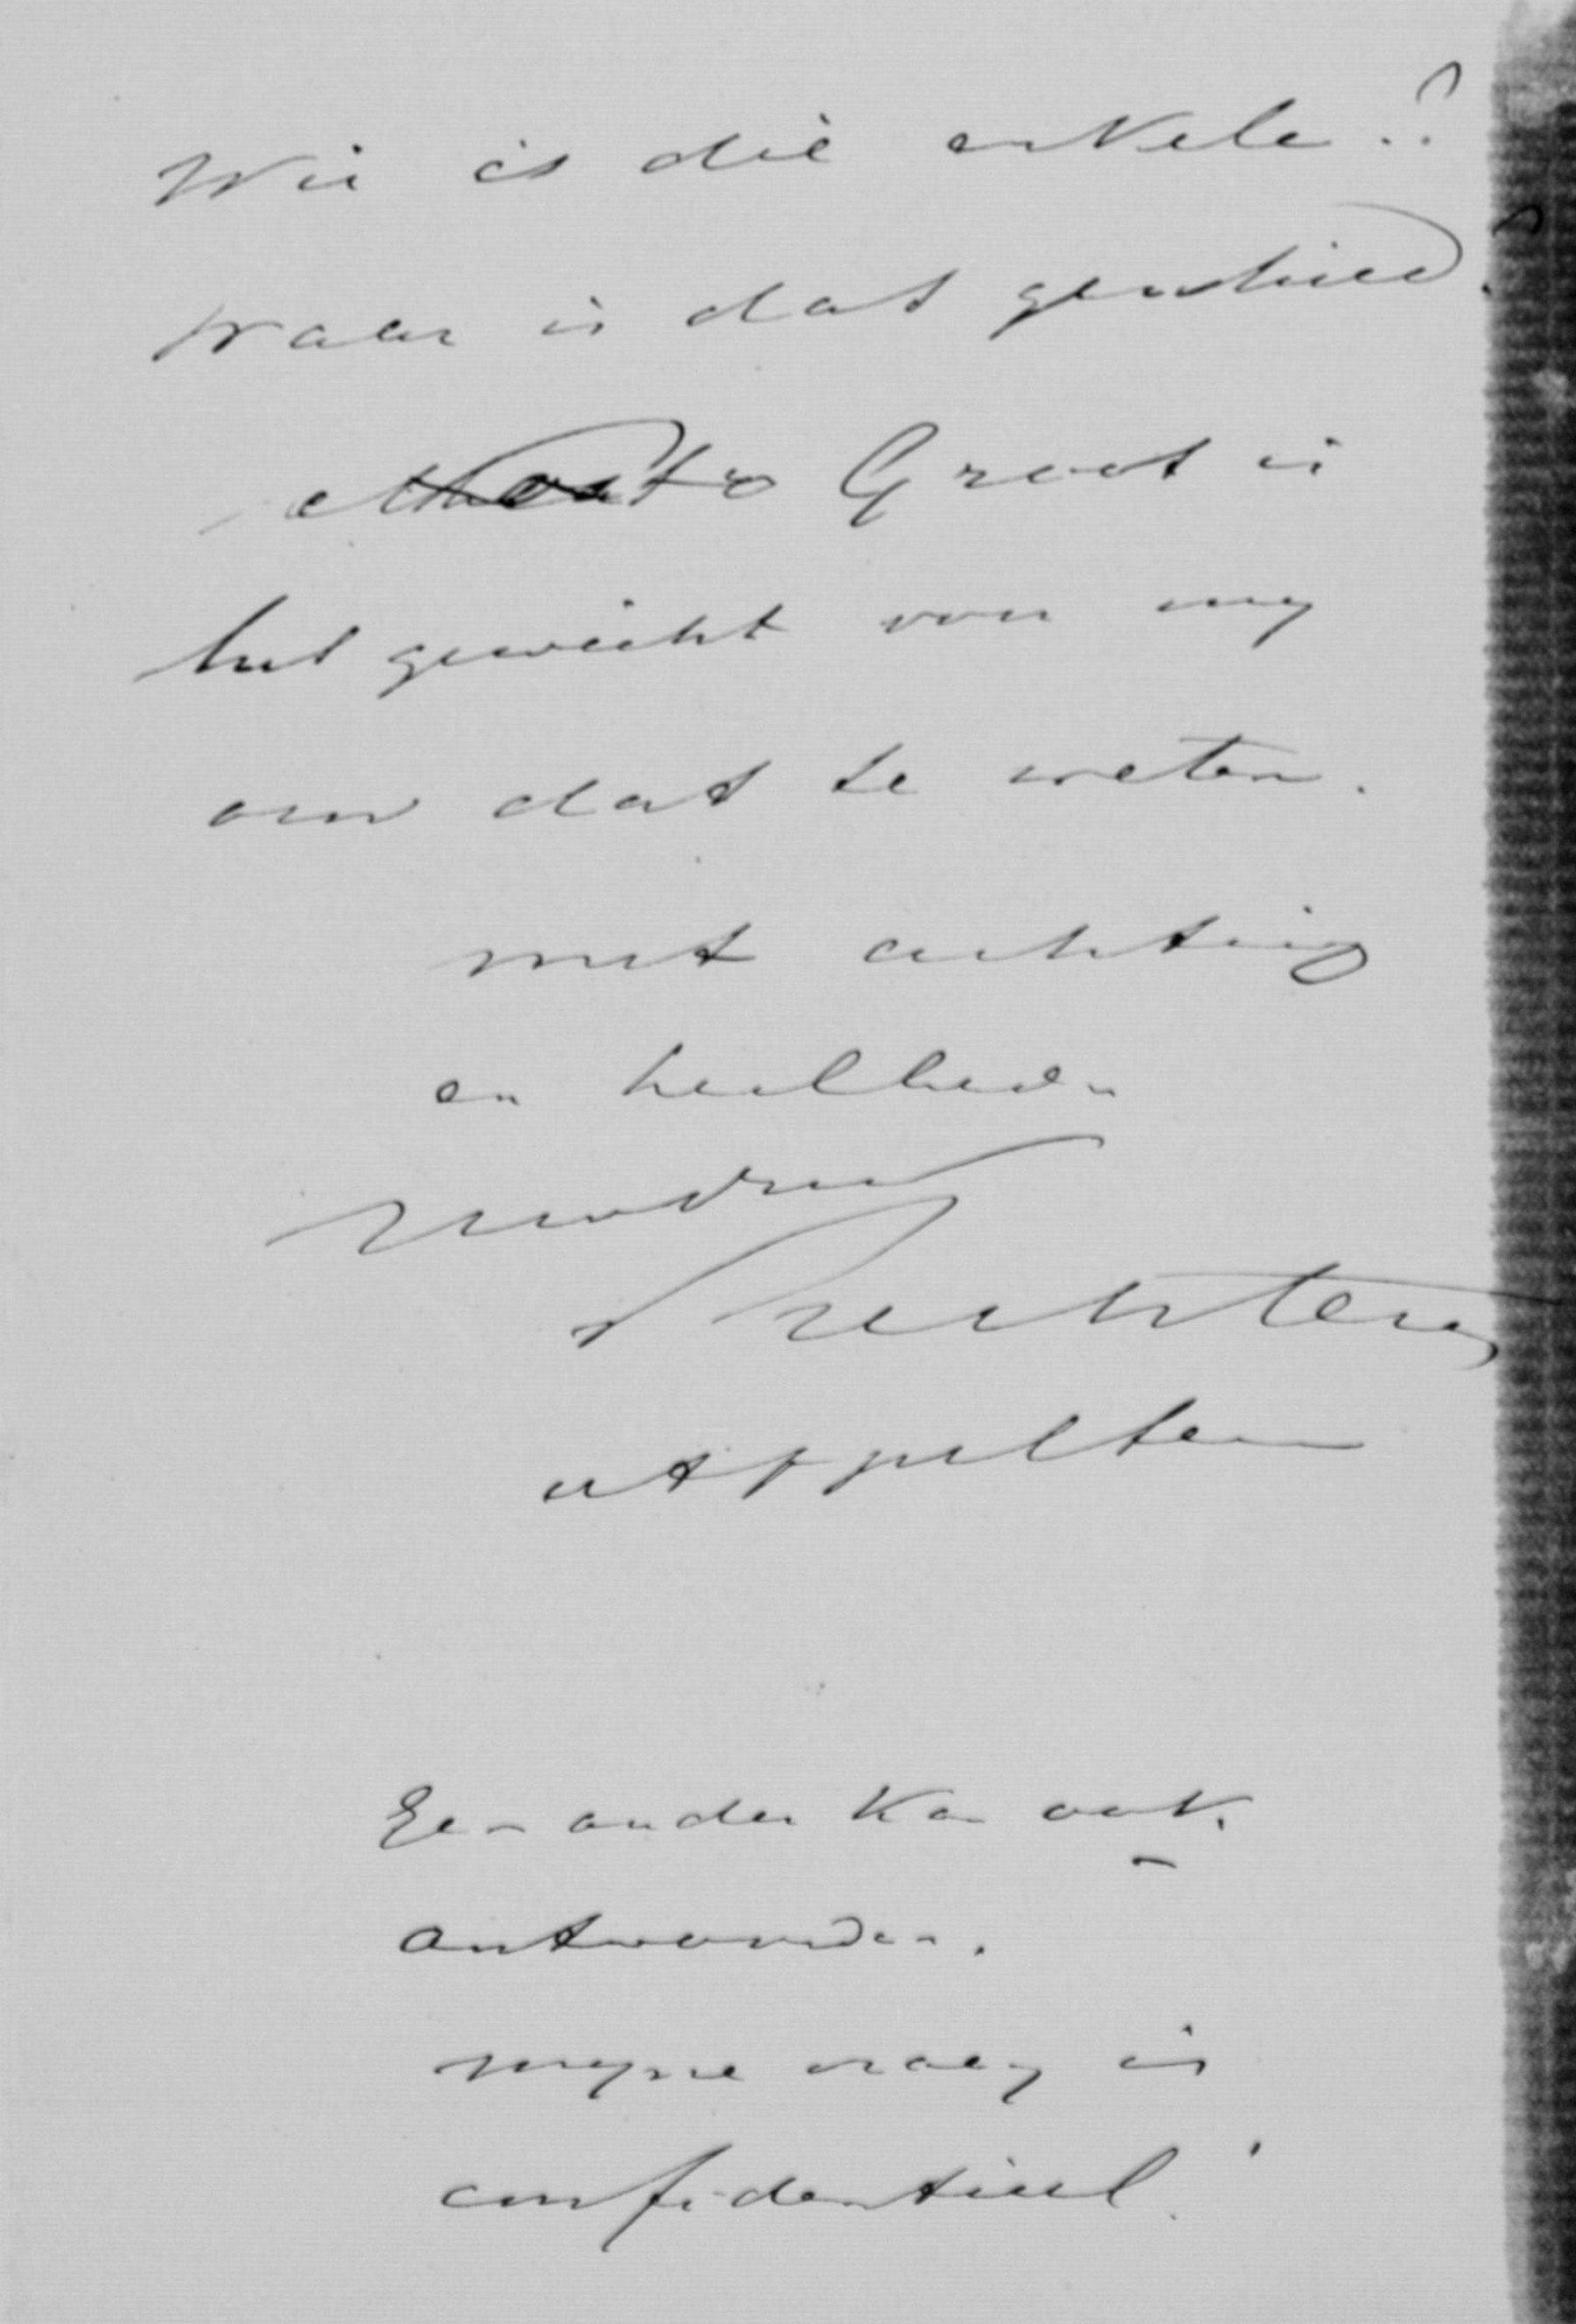 Wie is die enkele ..?
Waar is dat geschied.?
Groot is
het gewicht voor my
om dat te weten.
met achting
en heilbede
uwdw
Rechteren
Appeltern
Een ander kan ook
antwoorden.
myne vraag is
confidentieel.